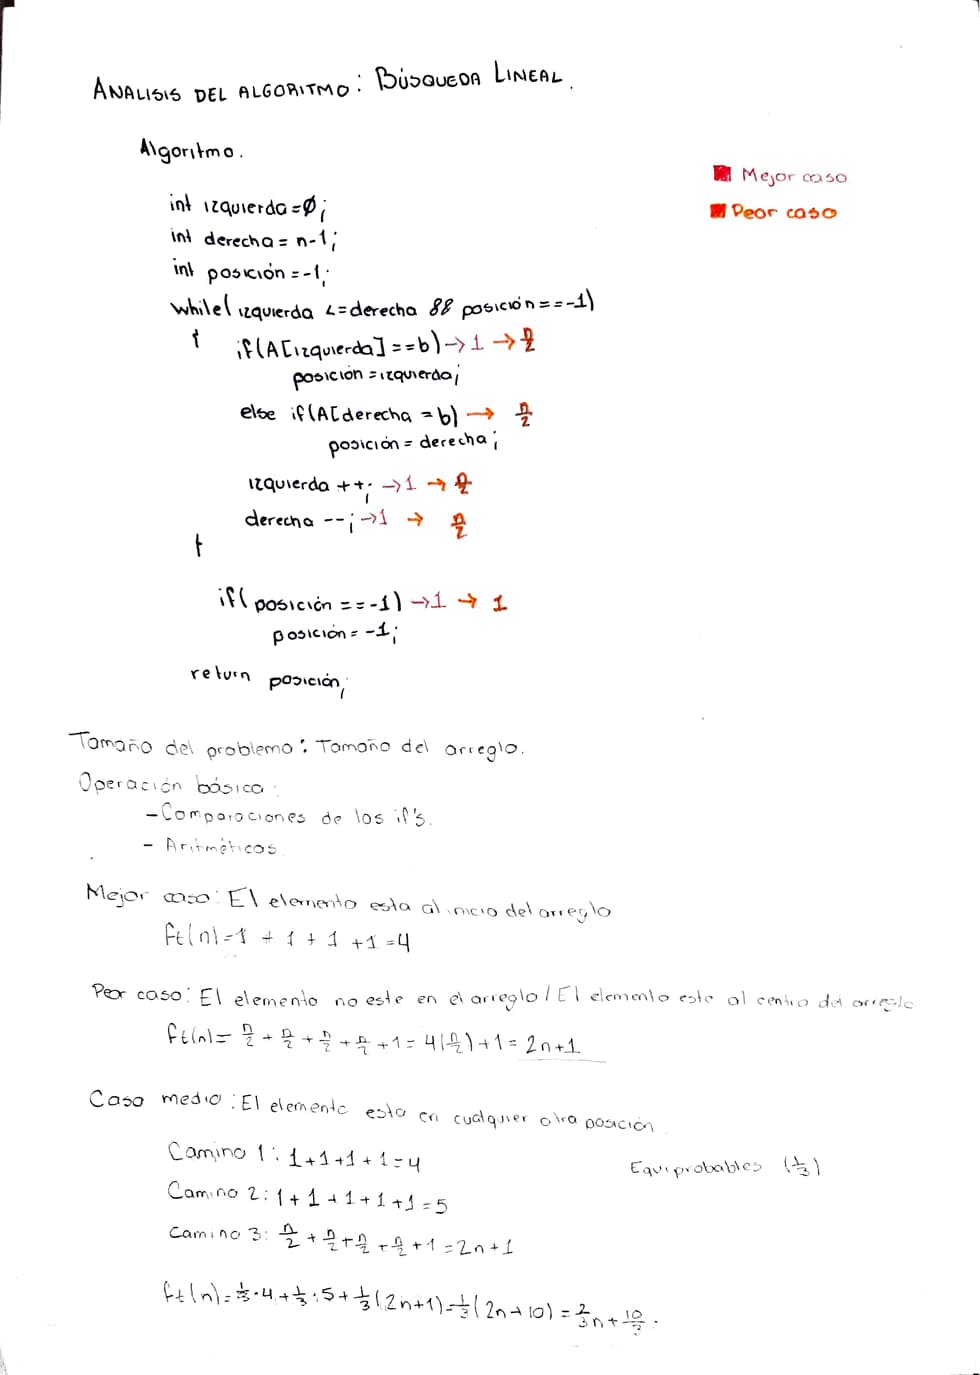 ANALISIS DEL ALGORITMO: BÚSQUEDA LINEAL.
Algoritmo.
Mejor caso
Peor caso
int izquierda=0;
int derecha = n-1;
int posición =-1;
while( izquierda <=derecha && posición ==-1)
{
if(A[izquierda]==b)→1 → n/2
posición =izquierda;
else if(A[derecha =b) → n/2
posición = derecha;
izquierda ++; →1 → n/2
derecha --; →1 → n/2
}
if( posición ==-1) →1 → 1
posición = -1;
return posición;
Tamaño del problema: Tamaño del arreglo.
Operación básica:
-Comparaciones de los if's.
- Aritméticas
Mejor caso: El elemento esta al inicio del arreglo
ft(n)=1 + 1 + 1 +1 =4
Peor caso: El elemento no este en el arreglo / El elemento este al centro del arreglo
ft(n)= n/2 + n/2 + n/2 + n/2 +1= 4(n/2)+1= 2n+1
Caso medio: El elemento esta en cualquier otra posición
Camino 1: 1+1+1+1=4
Equiprobables (1/3)
Camino 2: 1+1+1+1+1=5
Camino 3: n/2 + n/2 + n/2 + n/2 +1 =2n+1
ft(n)= 1/3·4+1/3·5+1/3(2n+1)=1/3(2n+10)=2/3n+10/3.